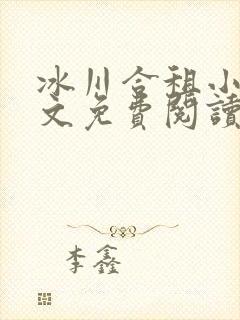 冰川合租小
文免費閱讀
李鑫